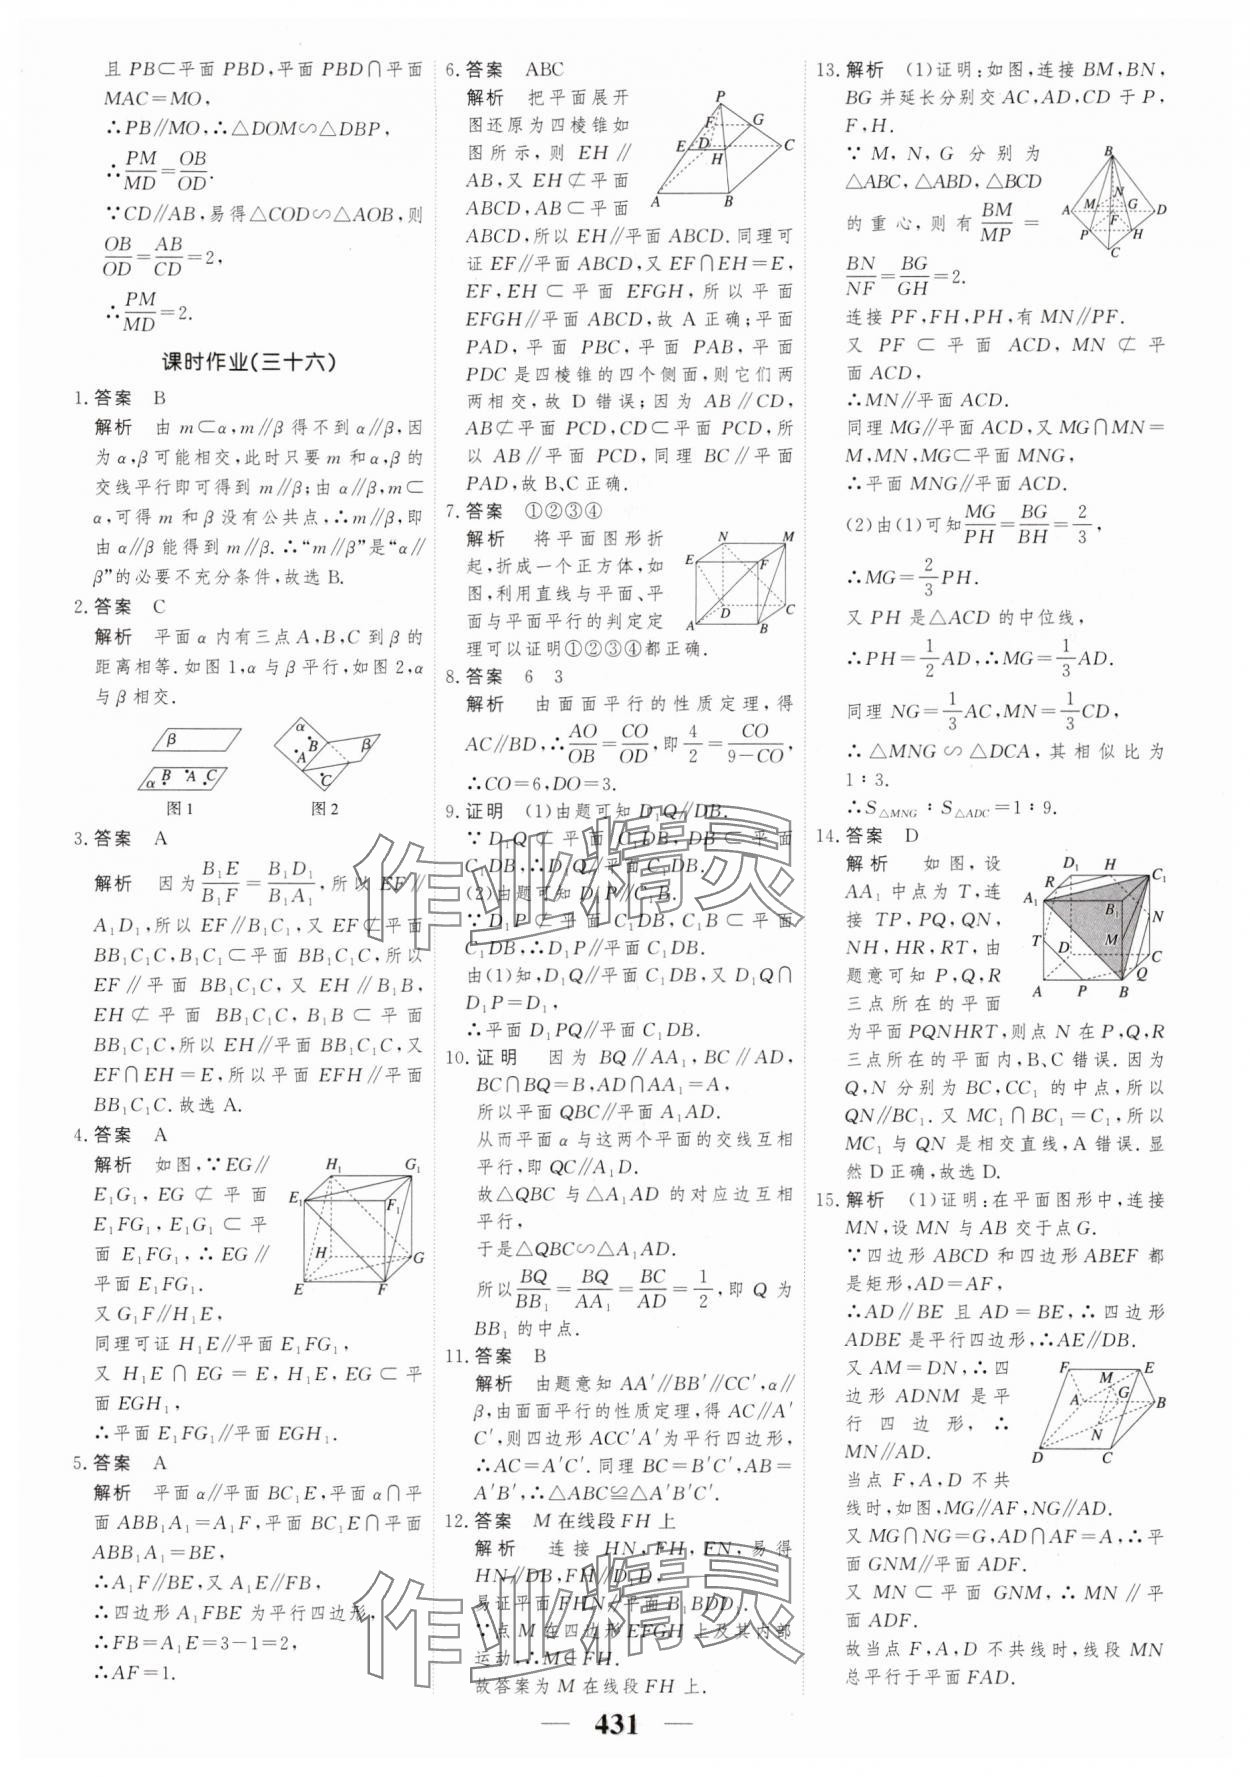 且 PB⊂平面 PBD,平面 PBD∩平面
MAC=MO,
∴PB∥MO,∴△DOM∽△DBP,
∴PM/MD=OB/OD.
∵CD∥AB,易得△COD∽△AOB,则
OB/OD=AB/CD=2,
∴PM/MD=2.
课时作业(三十六)
1. 答案 B
解析 由 m⊂α,m∥β 得不到 α∥β,因
为 α,β 可能相交,此时只要 m 和 α,β 的
交线平行即可得到 m∥β;由 α∥β,m⊂
α,可得 m 和 β 没有公共点,∴m∥β,即
由 α∥β 能得到 m∥β.∴“m∥β”是“α∥
β”的必要不充分条件,故选 B.
2. 答案 C
解析 平面 α 内有三点 A,B,C 到 β 的
距离相等.如图 1,α 与 β 平行,如图 2,α
与 β 相交.
β
α B A C
图 1
α B A C β
图 2
3. 答案 A
解析 因为 B₁E/B₁F=B₁D₁/B₁A₁,所以 EF∥
A₁D₁,所以 EF∥B₁C₁,又 EF⊄平面
BB₁C₁C,B₁C₁⊂平面 BB₁C₁C,所以
EF∥平面 BB₁C₁C,又 EH∥B₁B,
EH⊄平面 BB₁C₁C,B₁B⊂平面
BB₁C₁C,所以 EH∥平面 BB₁C₁C,又
EF∩EH=E,所以平面 EFH∥平面
BB₁C₁C.故选 A.
4. 答案 A
解析 如图,∵EG∥
E₁G₁,EG⊄平面
E₁FG₁,E₁G₁⊂平
面 E₁FG₁,∴EG∥
平面 E₁FG₁.
H₁ G₁ E₁ F₁ H G E F
又 G₁F∥H₁E,
同理可证 H₁E∥平面 E₁FG₁,
又 H₁E∩EG=E,H₁E,EG⊂平
面 EGH₁,
∴平面 E₁FG₁∥平面 EGH₁.
5. 答案 A
解析 平面 α∥平面 BC₁E,平面 α∩平
面 ABB₁A₁=A₁F,平面 BC₁E∩平面
ABB₁A₁=BE,
∴A₁F∥BE,又 A₁E∥FB,
∴四边形 A₁FBE 为平行四边形,
∴FB=A₁E=3-1=2,
∴AF=1.
6. 答案 ABC
解析 把平面展开
图还原为四棱锥如
图所示,则 EH∥
AB,又 EH⊄平面
ABCD,AB⊂平面
P F G E D H C A B
ABCD,所以 EH∥平面 ABCD.同理可
证 EF∥平面 ABCD,又 EF∩EH=E,
EF,EH⊂平面 EFGH,所以平面
EFGH∥平面 ABCD,故 A 正确;平面
PAD,平面 PBC,平面 PAB,平面
PDC 是四棱锥的四个侧面,则它们两
两相交,故 D 错误;因为 AB∥CD,
AB⊄平面 PCD,CD⊂平面 PCD,所
以 AB∥平面 PCD,同理 BC∥平面
PAD,故 B、C 正确.
7. 答案 ①②③④
解析 将平面图形折
起,折成一个正方体,如
图,利用直线与平面、平
面与平面平行的判定定
理可以证明①②③④都正确.
N M E F D C A B
8. 答案 6 3
解析 由面面平行的性质定理,得
AC∥BD,∴AO/OB=CO/OD,即 4/2=CO/(9-CO),
∴CO=6,DO=3.
9. 证明 (1)由题可知 D₁Q∥DB.
∵D₁Q⊄平面 C₁DB,DB⊂平面
C₁DB,∴D₁Q∥平面 C₁DB.
(2)由题可知 D₁P∥C₁B.
∵D₁P⊄平面 C₁DB,C₁B⊂平面
C₁DB,∴D₁P∥平面 C₁DB.
由(1)知,D₁Q∥平面 C₁DB,又 D₁Q∩
D₁P=D₁,
∴平面 D₁PQ∥平面 C₁DB.
10. 证明 因为 BQ∥AA₁,BC∥AD,
BC∩BQ=B,AD∩AA₁=A,
所以平面 QBC∥平面 A₁AD.
从而平面 α 与这两个平面的交线互相
平行,即 QC∥A₁D.
故△QBC 与△A₁AD 的对应边互相
平行,
于是△QBC∽△A₁AD.
所以 BQ/BB₁=BQ/AA₁=BC/AD=1/2,即 Q 为
BB₁ 的中点.
11. 答案 B
解析 由题意知 AA′∥BB′∥CC′,α∥
β,由面面平行的性质定理,得 AC∥A′
C′,则四边形 ACC′A′为平行四边形,
∴AC=A′C′.同理 BC=B′C′,AB=
A′B′,∴△ABC≌△A′B′C′.
12. 答案 M 在线段 FH 上
解析 连接 HN,FH,FN,易得
HN∥DB,FH∥D₁D,
易证平面 FHN∥平面 B₁BDD₁.
∵点 M 在四边形 EFGH 上及其内部
运动,∴M∈FH.
故答案为 M 在线段 FH 上.
13. 解析 (1)证明:如图,连接 BM,BN,
BG 并延长分别交 AC,AD,CD 于 P,
F,H.
∵M,N,G 分别为
△ABC,△ABD,△BCD
的重心,则有 BM/MP=
BN/NF=BG/GH=2.
B N M G A F D P H C
连接 PF,FH,PH,有 MN∥PF.
又 PF⊂平面 ACD,MN⊄平
面 ACD,
∴MN∥平面 ACD.
同理 MG∥平面 ACD,又 MG∩MN=
M,MN,MG⊂平面 MNG,
∴平面 MNG∥平面 ACD.
(2)由(1)可知 MG/PH=BG/BH=2/3,
∴MG=2/3 PH.
又 PH 是△ACD 的中位线,
∴PH=1/2 AD,∴MG=1/3 AD.
同理 NG=1/3 AC,MN=1/3 CD,
∴△MNG∽△DCA,其相似比为
1∶3.
∴S△MNG∶S△ADC=1∶9.
14. 答案 D
解析 如图,设
AA₁ 中点为 T,连
接 TP,PQ,QN,
NH,HR,RT,由
题意可知 P,Q,R
三点所在的平面
D₁ H C₁ R A₁ B₁ N T M D C Q A P B
为平面 PQNHRT,则点 N 在 P,Q,R
三点所在的平面内,B、C 错误.因为
Q,N 分别为 BC,CC₁ 的中点,所以
QN∥BC₁.又 MC₁∩BC₁=C₁,所以
MC₁ 与 QN 是相交直线,A 错误.显
然 D 正确,故选 D.
15. 解析 (1)证明:在平面图形中,连接
MN,设 MN 与 AB 交于点 G.
∵四边形 ABCD 和四边形 ABEF 都
是矩形,AD=AF,
∴AD∥BE 且 AD=BE,∴四边形
ADBE 是平行四边形,∴AE∥DB.
又 AM=DN,∴四
边形 ADNM 是平
行四边形,∴
MN∥AD.
F E M G A B N D C
当点 F,A,D 不共
线时,如图,MG∥AF,NG∥AD.
又 MG∩NG=G,AD∩AF=A,∴平
面 GNM∥平面 ADF.
又 MN⊂平面 GNM,∴MN∥平
面 ADF.
故当点 F,A,D 不共线时,线段 MN
总平行于平面 FAD.
作业精灵
作业精灵
— 431 —